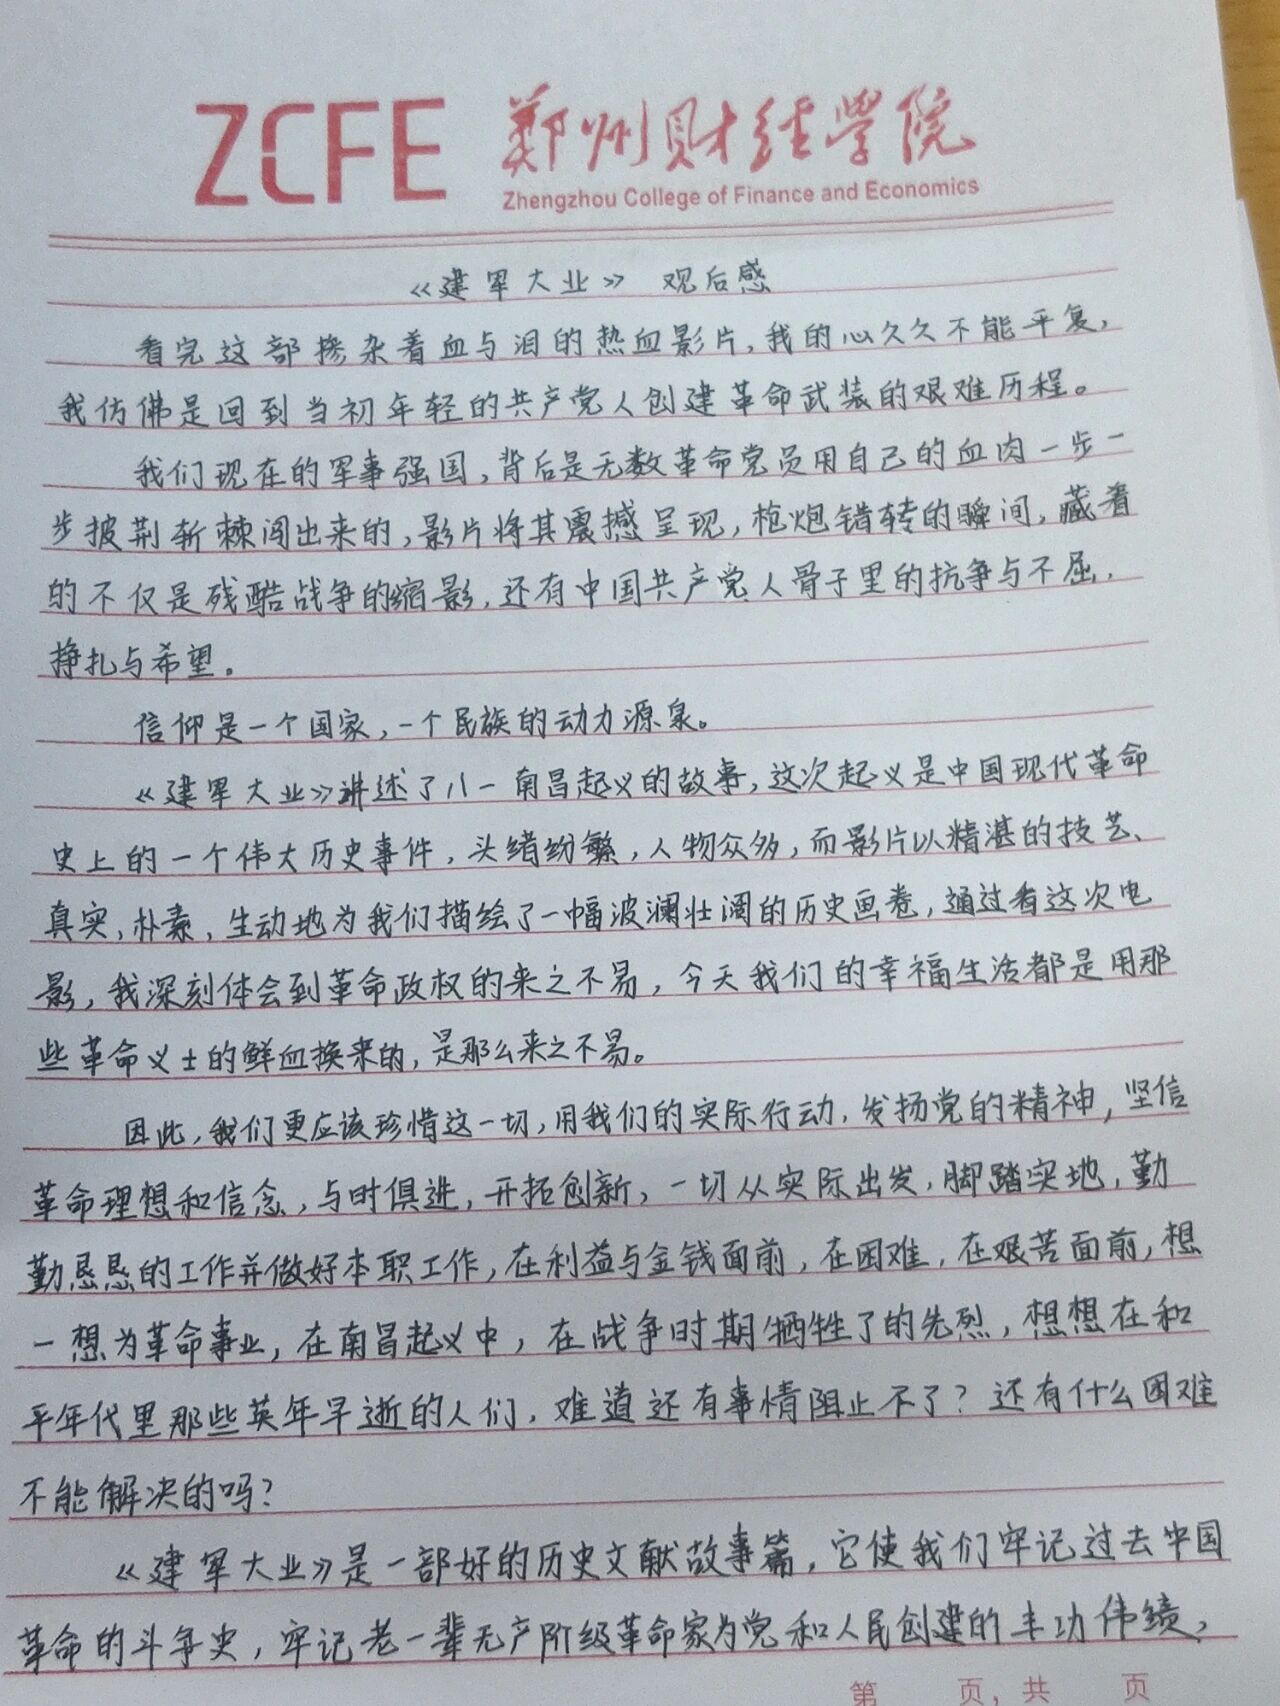 ZCFE 郑州财经学院
Zhengzhou College of Finance and Economics
《建军大业》 观后感
看完这部掺杂着血与泪的热血影片,我的心久久不能平复,
我仿佛是回到当初年轻的共产党人创建革命武装的艰难历程。
我们现在的军事强国,背后是无数革命党员用自己的血肉一步一
步披荆斩棘闯出来的,影片将其震撼呈现,枪炮错转的瞬间,藏着
的不仅是残酷战争的缩影,还有中国共产党人骨子里的抗争与不屈,
挣扎与希望。
信仰是一个国家,一个民族的动力源泉。
《建军大业》讲述了八一南昌起义的故事,这次起义是中国现代革命
史上的一个伟大历史事件,头绪纷繁,人物众多,而影片以精湛的技艺、
真实,朴素,生动地为我们描绘了一幅波澜壮阔的历史画卷,通过看这次电
影,我深刻体会到革命政权的来之不易,今天我们的幸福生活都是用那
些革命义士的鲜血换来的,是那么来之不易。
因此,我们更应该珍惜这一切,用我们的实际行动,发扬党的精神,坚信
革命理想和信念,与时俱进,开拓创新,一切从实际出发,脚踏实地,勤
勤恳恳的工作并做好本职工作,在利益与金钱面前,在困难,在艰苦面前,想
一想为革命事业,在南昌起义中,在战争时期牺牲了的先烈,想想在和
平年代里那些英年早逝的人们,难道还有事情阻止不了?还有什么困难
不能解决的吗?
《建军大业》是一部好的历史文献故事篇,它使我们牢记过去中国
革命的斗争史,牢记老一辈无产阶级革命家为党和人民创建的丰功伟绩,
第 页,共 页